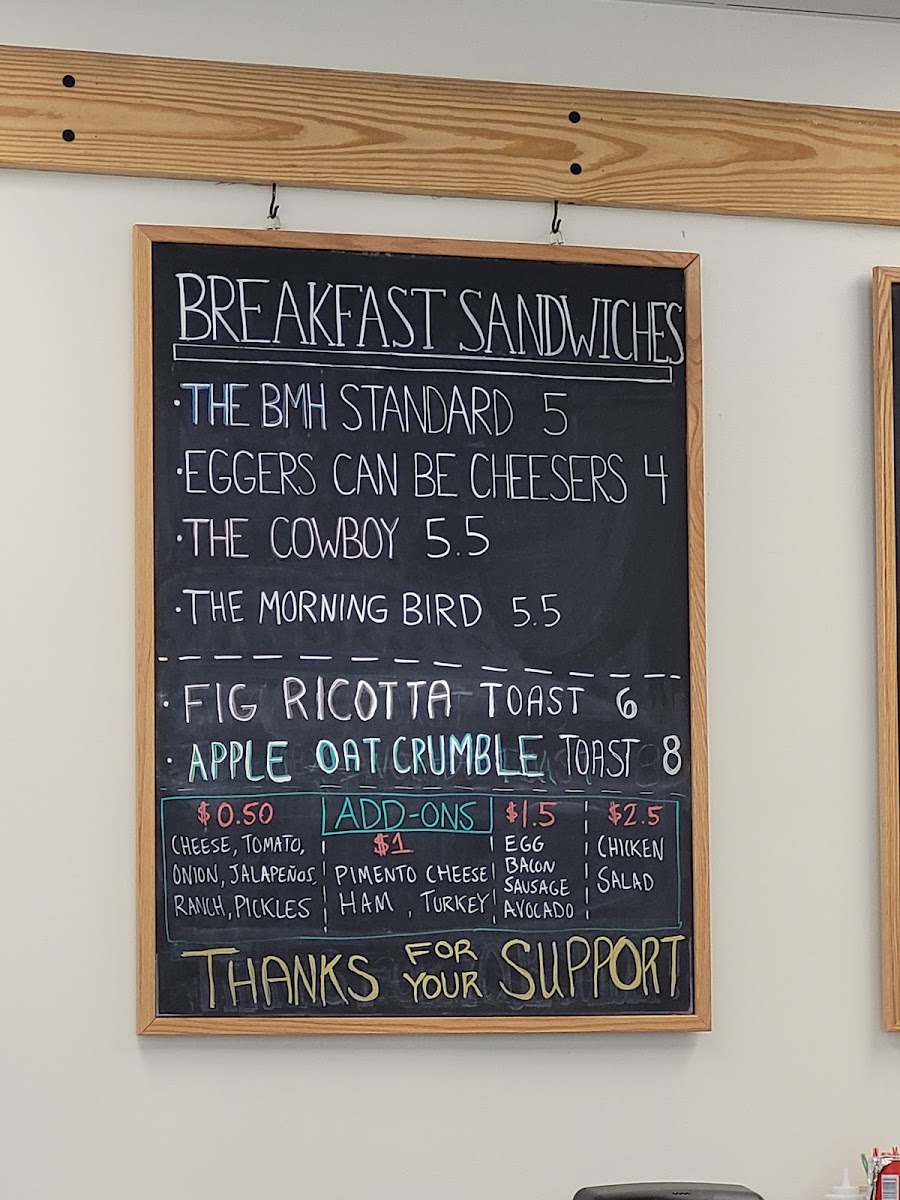 BREAKFAST SANDWICHES
·THE BMH STANDARD 5
·EGGERS CAN BE CHEESERS 4
·THE COWBOY 5.5
·THE MORNING BIRD 5.5
·FIG RICOTTA TOAST 6
·APPLE OAT CRUMBLE TOAST 8
ADD-ONS
$0.50
CHEESE, TOMATO,
ONION, JALAPEÑOS,
RANCH, PICKLES
$1
PIMENTO CHEESE
HAM, TURKEY
$1.5
EGG
BACON
SAUSAGE
AVOCADO
$2.5
CHICKEN
SALAD
THANKS FOR YOUR SUPPORT